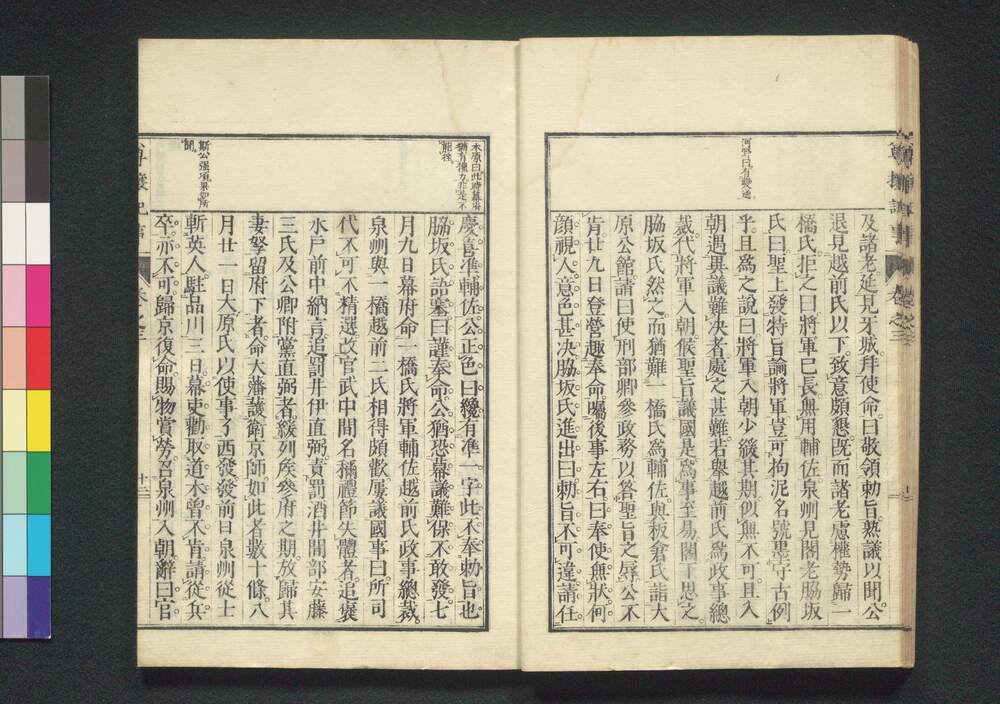 河野曰有變通
及諸老延見牙城拜使命曰敬領勅旨熟議以聞公
退見越前氏以下致意頗懇既而諸老慮權勢歸一
橋氏拒之曰將軍已長無用輔佐泉州見閣老脇坂
氏曰聖上發特旨諭將軍豈可拘泥名號墨守古例
乎且為之說曰將軍入朝少緩其期似無不可且入
朝遇異議難决者處之甚難若舉越前氏為政事總
裁代將軍入朝候聖旨議國是為事至易閣下思之
脇坂氏然之而猶難一橋氏為輔佐與板倉氏詣大
原公館請曰使刑部卿參政務以答聖旨之辱公不
肯廿九日登營趣奉命囑後事左右曰奉使無狀何
顏視人意色甚决脇坂氏進出曰勅旨不可違請任
木原曰此時幕府
猶有權力非是不
能挫
斯公强項果如所
聞
慶喜準輔佐公正色曰纔有準一字此不奉勅旨也
脇坂氏語塞曰謹奉命公猶恐幕議難保不敢發七
月九日幕府命一橋氏將軍輔佐越前氏政事總裁
泉州與一橋越前二氏相得頗歡屢議國事曰所司
代不可不精選改官武中間名稱禮節失體者追褒
水戶前中納言追罰井伊直弼責罰酒井間部安藤
三氏及公卿附黨直弼者緩列侯參府之期放歸其
妻孥留府下者命大藩護衛京師如此者數十條八
月廿一日大原氏以使事了西發發前日泉州從士
斬英人駐品川三日幕吏勸取道木曾不肯請從兵
卒亦不可歸京復命賜物賞勞召泉州入朝辭曰官
卷之三
十二